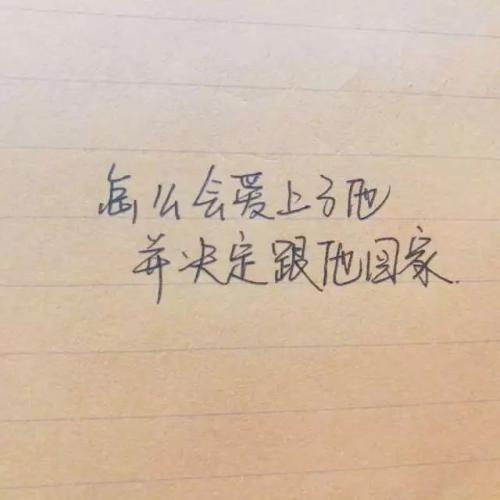 怎么会爱上了他
并决定跟他回家.